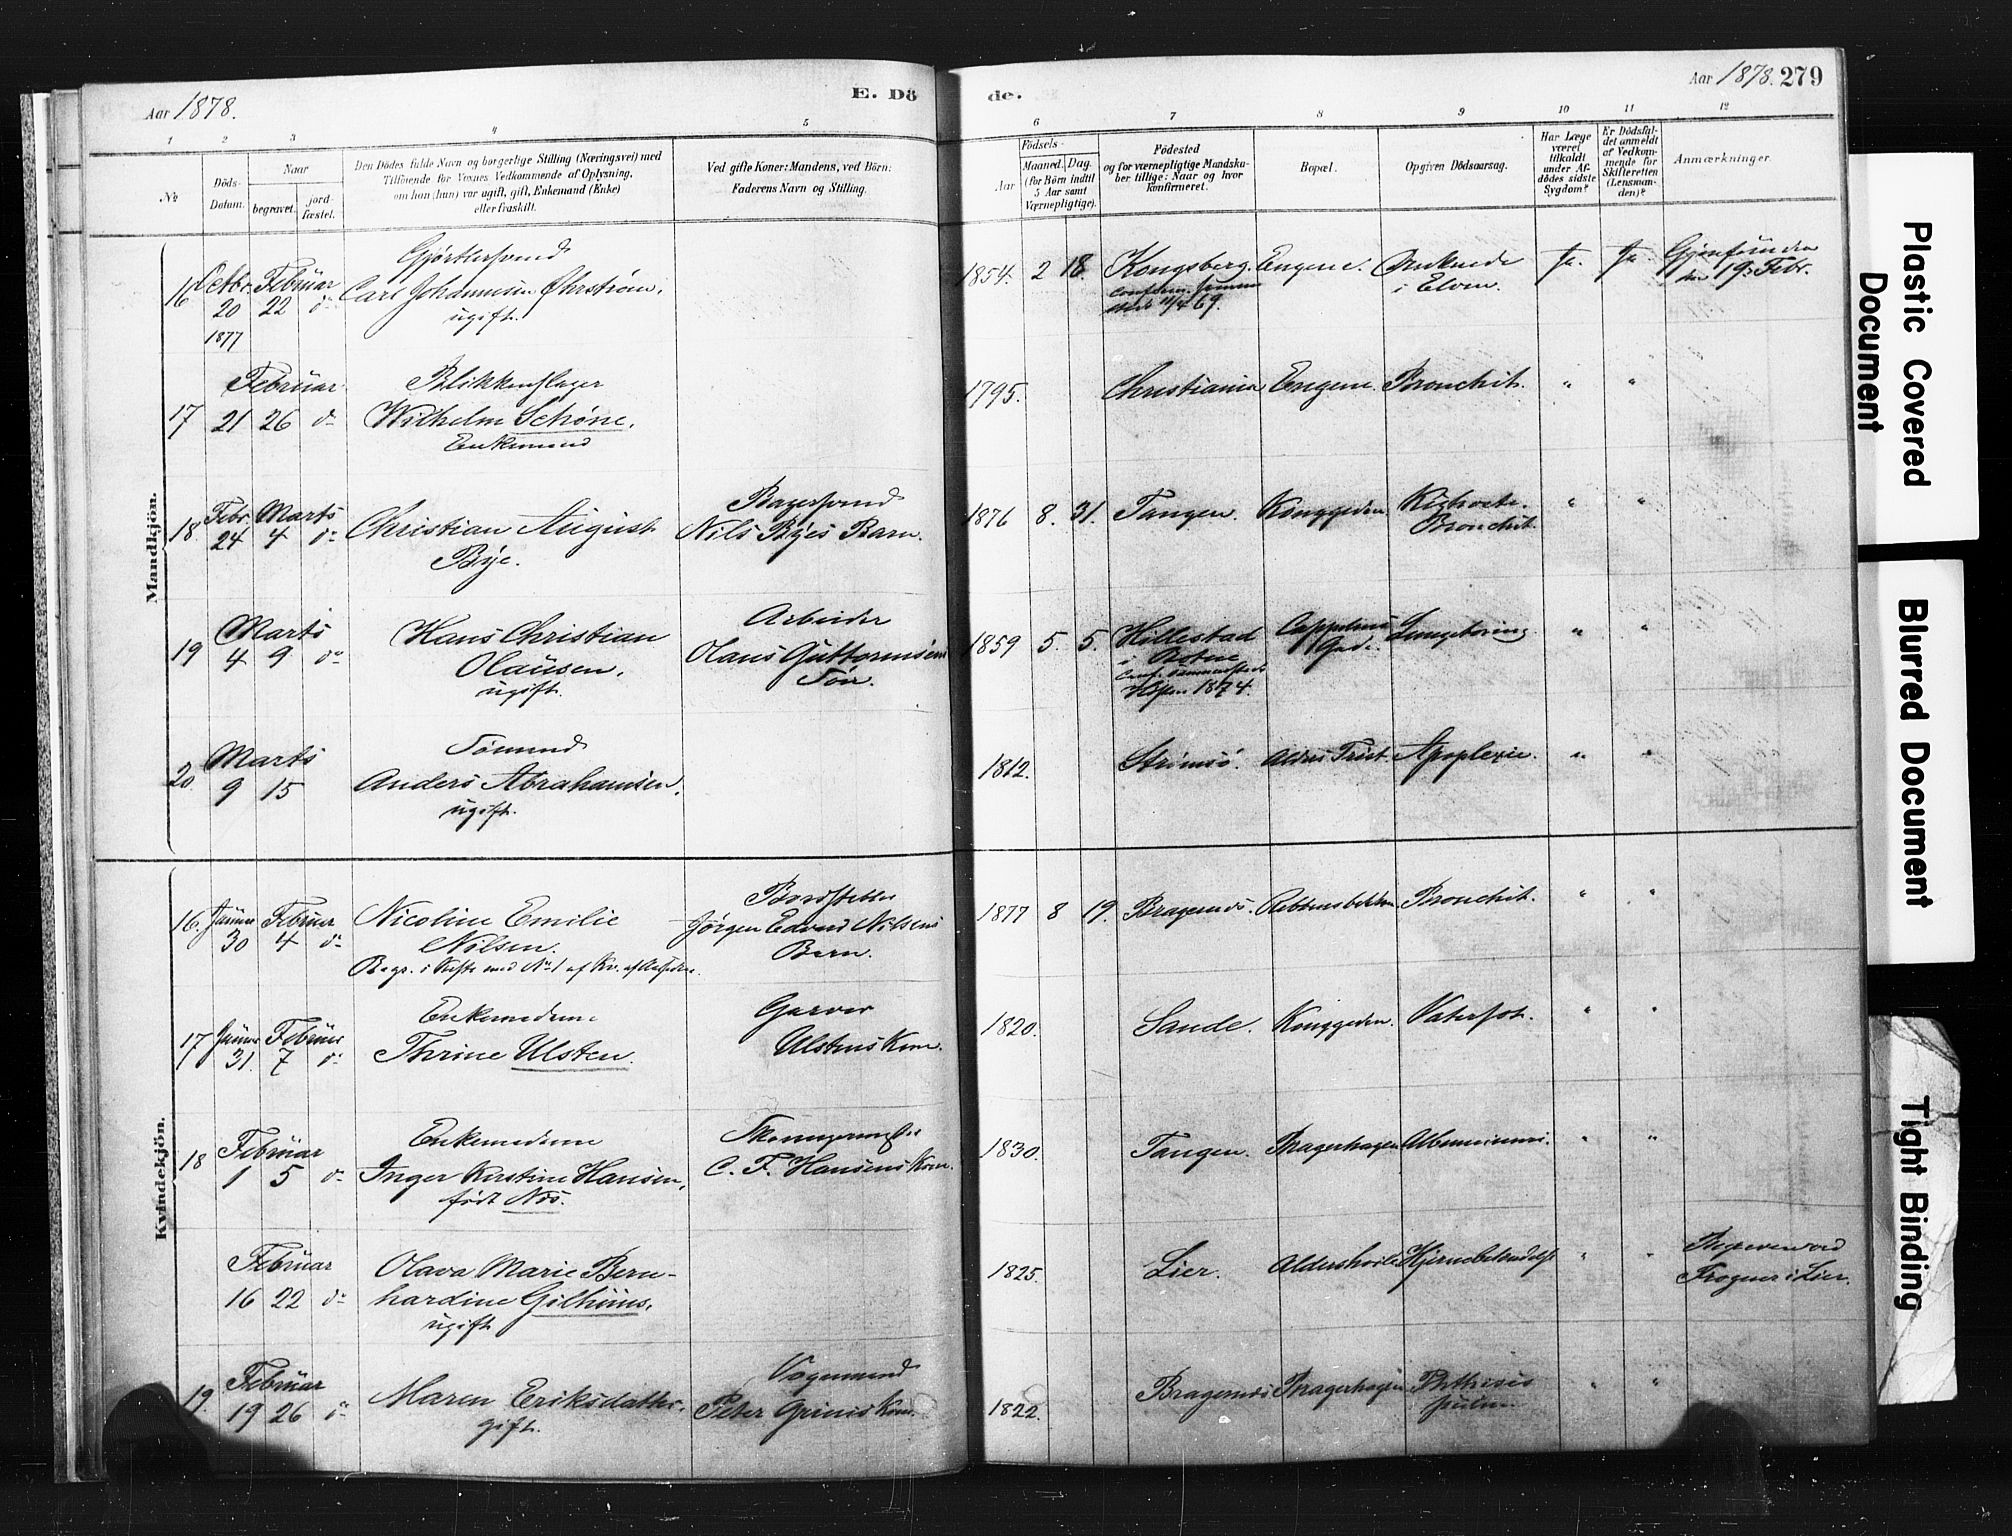 Aar 1878.
E. Dö
de.
Aar 1878. 279
1 2 3 4 5 6 7 8 9 10 11 12
No
Döds-
Datum.
Naar
begravet.
jord-
fæstet.
Den Dödes fulde Navn og borgerlige Stilling (Næringsvei) med
Tilföiende for Voxnes Vedkommende af Oplysning,
om han (hun) var ugift, gift, Enkemand (Enke)
eller fraskilt.
Ved gifte Koner: Mandens, ved Börn:
Faderens Navn og Stilling.
Födsels-
Aar
Maaned.
Dag.
(for Börn indtil
5 Aar samt
Værnepligtige).
Födested
og for værnepligtige Mandska-
ber tillige: Naar og hvor
konfirmeret.
Bopæl.
Opgiven Dödsaarsag.
Har Læge
været
tilkaldt
under Af-
dödes sidste
Sygdom?
Er Dödsfal-
det anmeldt
af Vedkom-
mende for
Skifteretten
(Lensman-
den)?
Anmærkninger.
Mandkjön.
16 Octbr. 20 1877 Februar 22 do
Gjørtlersvend
Carl Johannesen Øhrstrøm.
ugift.
1854. 2 18. Kongsberg. Engene. Druknede
i Elven. Ja. Ja. Gjenfunden
den 19: Febr.
11/4 69.
17 Februar 21 26 do
Blikkenslager
Wilhelm Schøne.
Enkemand
1795. Christiania Engene. Bronchit. " "
18 Febr. 24 Marts 4 do
Christian August
Bye.
Bagersvend
Nils Byes Barn.
1876 8. 31. Tangen. Konggaden. Kighoste.
Bronchit. " "
19 Marts 4 9 do
Hans Christian
Olausen.
ugift.
Arbeider
Olaus Guttormsens
Søn.
1859 5. 5. Hillestad
i Botne
1874.
Cappelens
Gade. " "
20. Marts 9 15
Sømand
Anders Abrahamsen.
ugift.
1812. Strømsø. Apoplexie. " "
Kvindekjön.
16. Januar 30 Februar 4 do
Nicoline Emilie
Nilsen.
Jørgen Edvard Nilsens
Barn.
1877 8 19. Bragernes. Bronchit. " "
17 Januar 31. Februar 7 do
Enkemadame
Thrine Ulsten.
Garver
Ulstens Kone.
1820. Sande. Konggaden. Vatersot. " "
18 Februar 1 5 do
Enkemadame
Inger Kirstine Hansen,
født Næs.
C. F. Hansens Kone.
1830. Tangen. Bragerhagen " "
Februar 16 22 do
Olava Marie Bern-
hardine Gilhuus.
ugift
1825. Lier. Aldershvile " "
Frogner i Lier.
19. Februar 19 26 do
Maren Eriksdatter.
gift.
Vognmand
Peter Kone.
1822. Bragernes Bragerhagen Phthisis " "
Plastic Covered
Document
Blurred Document
Tight Binding